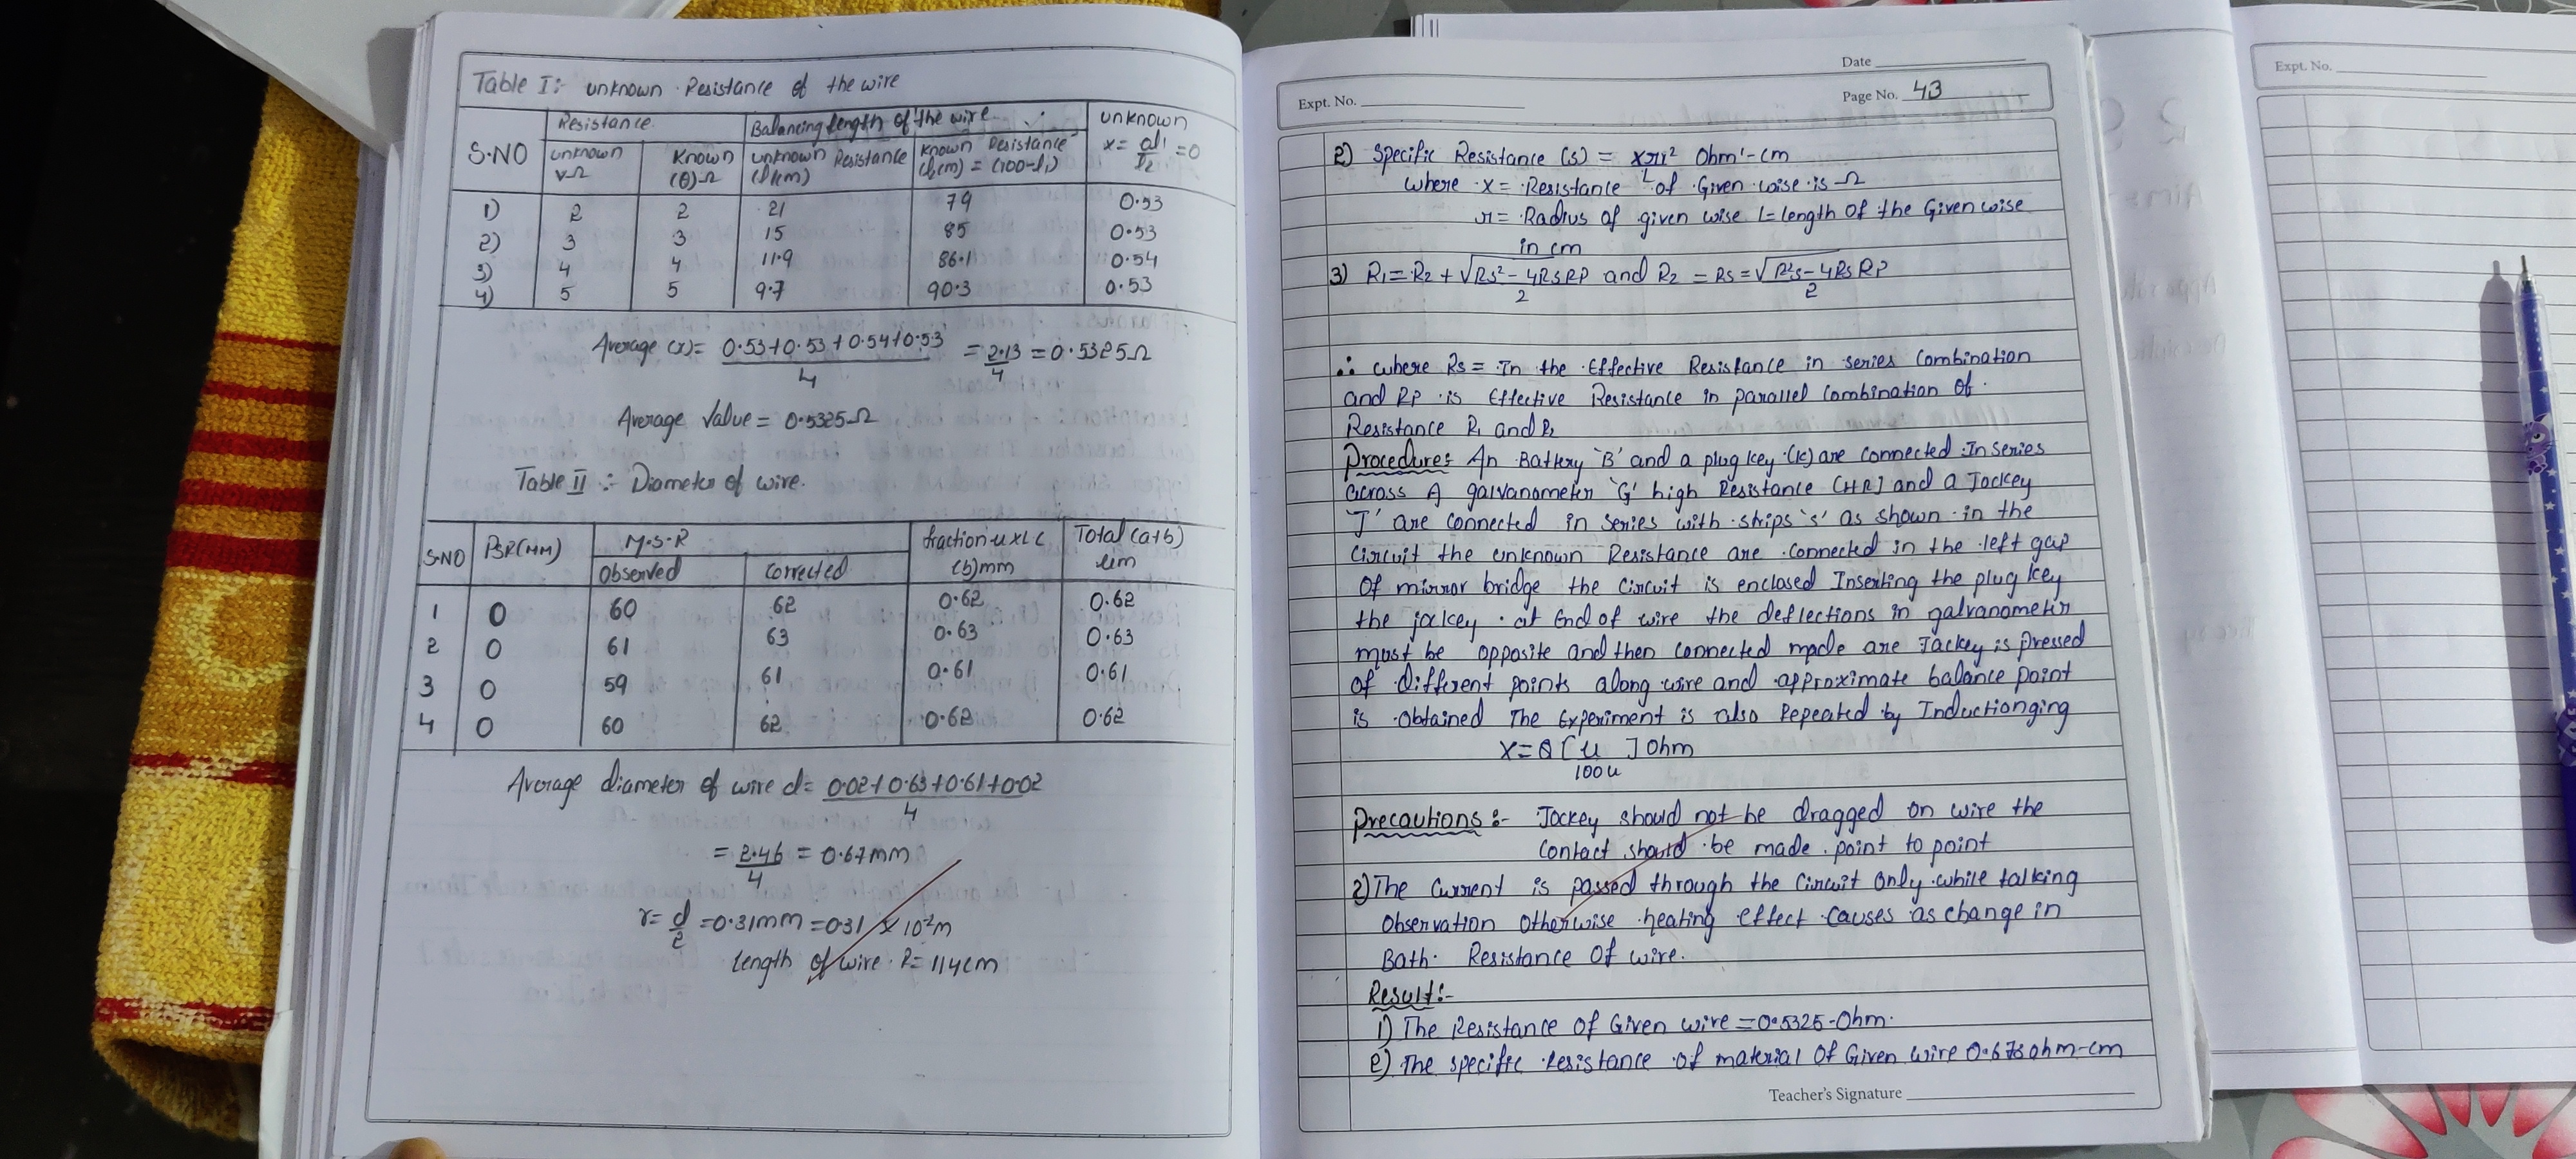 Table I: unknown Resistance of the wire
S.NO
Resistance
unknown
Known
Balancing length of the wire
unknown Resistance
known Resistance
(l2cm) = (100-l1)
unknown
1) 2 2 21 79 0.53
2) 3 3 15 85 0.53
3) 4 4 11.9 88.1 0.54
4) 5 5 9.7 90.3 0.53
Average (x) = 0.53+0.53+0.54+0.53 / 4 = 2.13 / 4 = 0.5325Ω
Average value = 0.5325Ω
Table II :- Diameter of wire.
S.NO
P.S.R(MM)
M.S.R
Observed
Corrected
fraction
(b)mm
Total (a+b)
1 0 60 62 0.62 0.62
2 0 61 63 0.63 0.63
3 0 59 61 0.61 0.61
4 0 60 62 0.62 0.62
Average diameter of wire d =
= 2.46 / 4 = 0.67mm
r = d/2 = 0.31mm = 0.31 × 10²m
length of wire
Expt. No.
Date
Page No. 43
2) Specific Resistance (s) = xπr² / L Ohm-cm
where x = Resistance of Given wise is Ω
r = Radius of given wise l = length of the Given wise
in cm
3) R1 = R2 + √Rs² - 4RsRp / 2 and R2 = Rs = √R²s - 4RsRp / 2
∴ where Rs = In the effective Resistance in series combination
and RP is Effective Resistance in parallel Combination of
Resistance R1 and R2
procedure: An Battery 'B' and a plug key (K) are connected In series
across A galvanometer 'G' high Resistance (H.R) and a Jockey
'J' are connected in series with ships 's' as shown in the
circuit the unknown Resistance are connected in the left gap
of mirror bridge the circuit is enclosed Inserting the plug key
the jockey at End of wire the deflections in galvanometer
must be opposite and then connected made are Jackey is pressed
of different points along wire and approximate balance point
is obtained The Experiment is also Repeated by Inductionging
X = Q [ ll / 100 ll ] ohm
precautions :- Jockey should not be dragged on wire the
contact should be made point to point
2) The current is passed through the circuit only while talking
observation otherwise heating effect causes as change in
Both Resistance of wire.
Result :-
1) The Resistance of Given wire = 0.5325 Ohm.
The specific resistance of material of Given wire ohm-cm
Teacher's Signature
Expt. No.